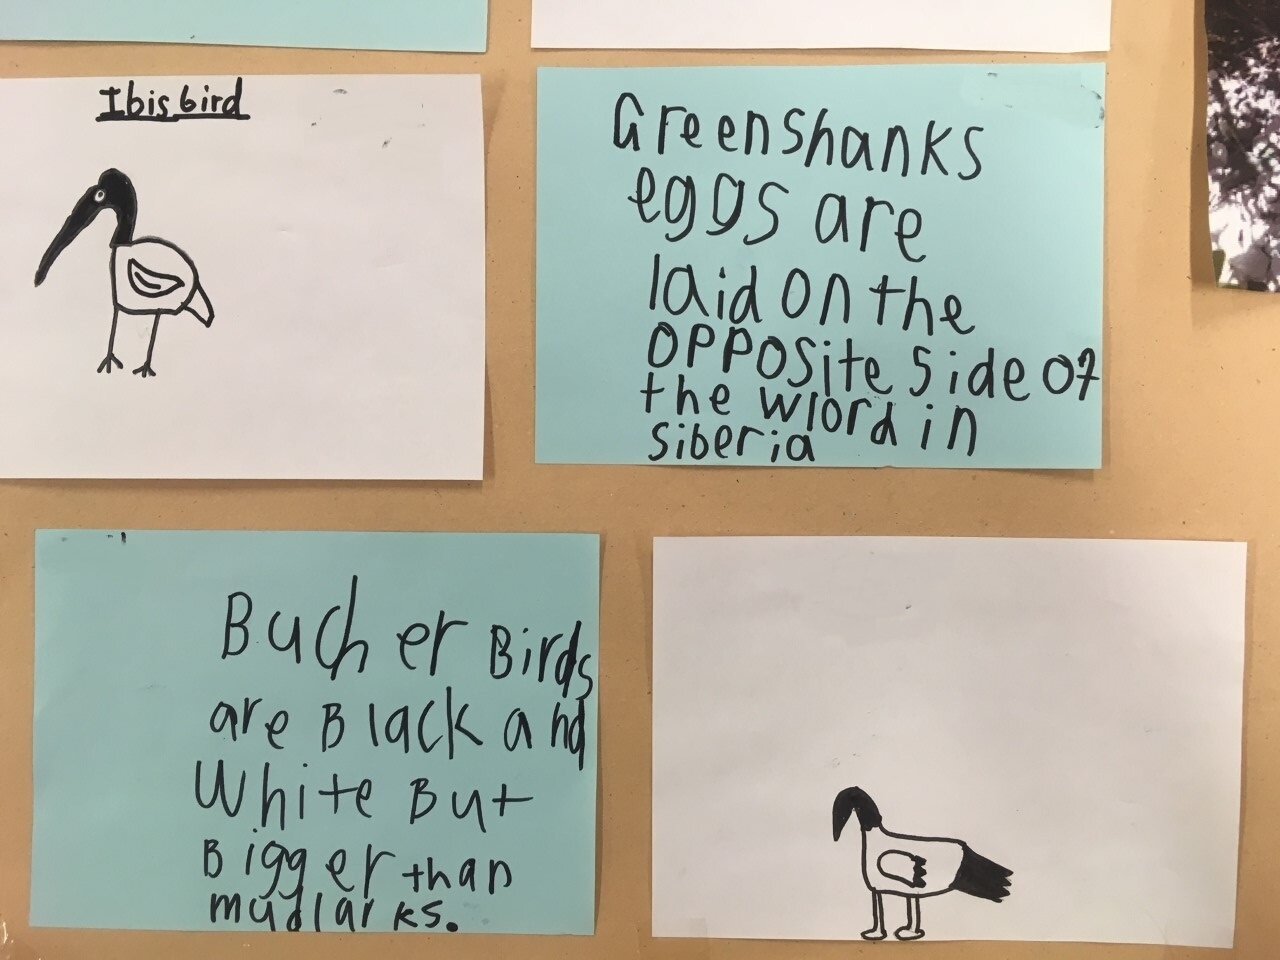 Ibis bird
Greenshanks
eggs are
laid on the
opposite side of
the wlord in
siberia
Bucher Birds
are Black and
White But
Bigger than
mudlarks.